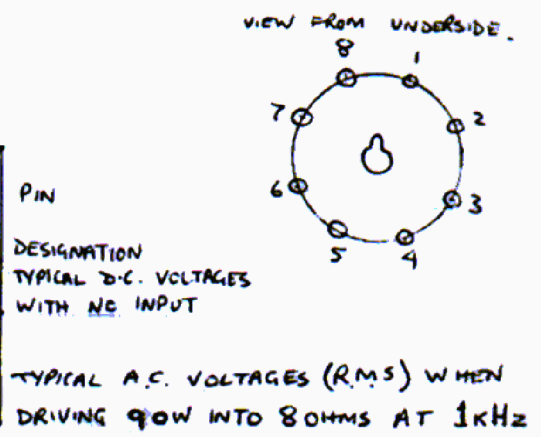 VIEW FROM UNDERSIDE.
8 1
7 2
6 3
5 4
PIN
DESIGNATION
TYPICAL D.C. VOLTAGES
WITH NO INPUT
TYPICAL A.C. VOLTAGES (R.M.S) WHEN
DRIVING 90W INTO 8 OHMS AT 1KHz